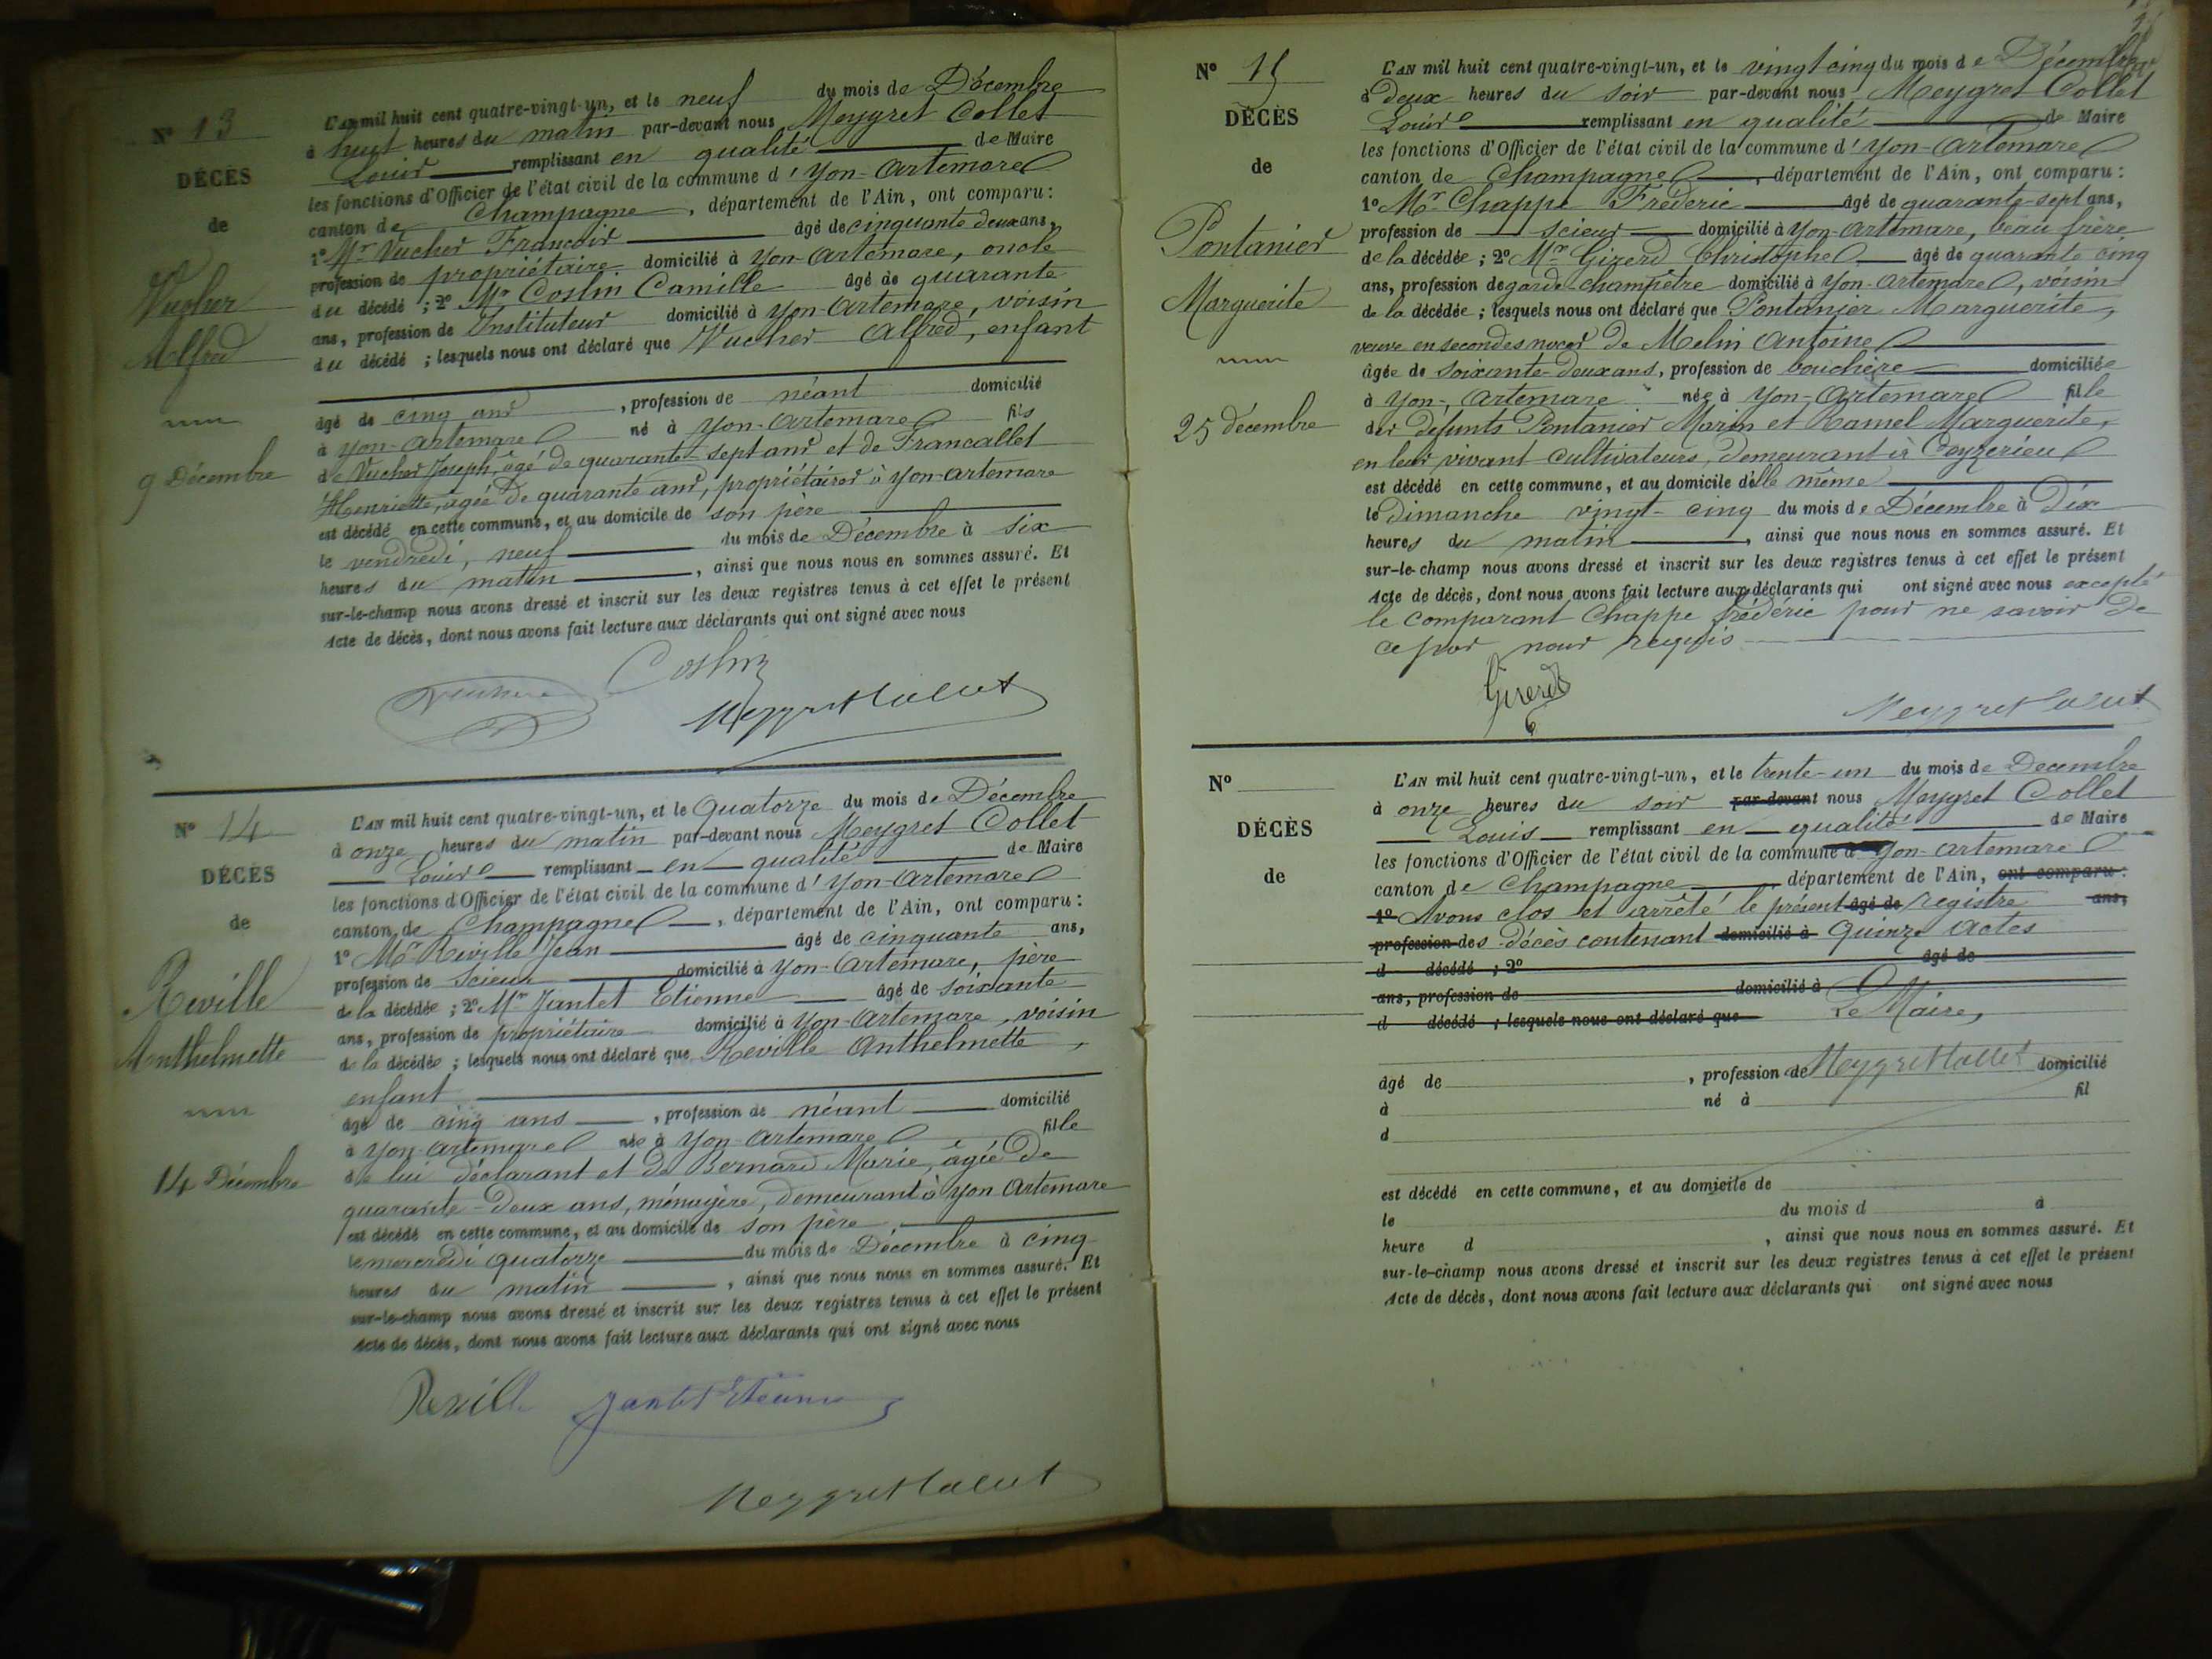 N° 13
DÉCÈS
de
Vucher
Alfred
9 Décembre
L'AN mil huit cent quatre-vingt-un, et le neuf du mois de Décembre
à huit heures du matin par-devant nous Meygret Collet
Louis remplissant en qualité de Maire
les fonctions d'Officier de l'état civil de la commune d'Yon-Artemare
canton de Champagne, département de l'Ain, ont comparu:
1° Mr Vucher François âgé de cinquante deux ans,
profession de propriétaire domicilié à Yon-Artemare, oncle
du décédé; 2° Mr Costin Camille âgé de quarante
ans, profession de Instituteur domicilié à Yon-Artemare, voisin
du décédé; lesquels nous ont déclaré que Vucher Alfred, enfant
âgé de cinq ans, profession de néant domicilié
à Yon-Artemare né à Yon-Artemare fils
de Vucher Joseph, âgé de quarante-sept ans et de Francallet
Henriette, âgée de quarante ans, propriétaires à Yon-Artemare
est décédé en cette commune, et au domicile de son père
le vendredi, neuf du mois de Décembre à six
heures du matin, ainsi que nous nous en sommes assuré. Et
sur-le-champ nous avons dressé et inscrit sur les deux registres tenus à cet effet le présent
Acte de décès, dont nous avons fait lecture aux déclarants qui ont signé avec nous
Costin
Vucher
Meygret Collet
N° 14
DÉCÈS
de
Reville
Anthelmette
14 Décembre
L'AN mil huit cent quatre-vingt-un, et le Quatorze du mois de Décembre
à onze heures du matin par-devant nous Meygret Collet
Louis remplissant en qualité de Maire
les fonctions d'Officier de l'état civil de la commune d'Yon-Artemare
canton de Champagne, département de l'Ain, ont comparu:
1° Mr Reville Jean âgé de cinquante ans,
profession de Scieur domicilié à Yon-Artemare, père
de la décédée; 2° Mr Jantet Etienne âgé de soixante
ans, profession de propriétaire domicilié à Yon-Artemare, voisin
de la décédée; lesquels nous ont déclaré que Reville Anthelmette,
enfant
âgé de cinq ans, profession de néant domicilié
à Yon-Artemare née à Yon-Artemare fille
de lui déclarant et de Bernard Marie, âgée de
quarante-deux ans, ménagère, demeurant à Yon Artemare
est décédé en cette commune, et au domicile de son père,
le mercredi quatorze du mois de Décembre à cinq
heures du matin, ainsi que nous nous en sommes assuré. Et
sur-le-champ nous avons dressé et inscrit sur les deux registres tenus à cet effet le présent
Acte de décès, dont nous avons fait lecture aux déclarants qui ont signé avec nous
Reville Jantet Etienne
Meygret Collet
N° 15
DÉCÈS
de
Pontanier
Marguerite
25 décembre
L'AN mil huit cent quatre-vingt-un, et le vingt cinq du mois de Décembre
à Deux heures du soir par-devant nous Meygret Collet
Louis remplissant en qualité de Maire
les fonctions d'Officier de l'état civil de la commune d'Yon-Artemare
canton de Champagne, département de l'Ain, ont comparu:
1° Mr Chappe Fréderic âgé de quarante-sept ans,
profession de scieur domicilié à Yon-Artemare, beau frère
de la décédée; 2° Mr Girerd Christophe âgé de quarante cinq
ans, profession de garde-champêtre domicilié à Yon-Artemare, voisin
de la décédée; lesquels nous ont déclaré que Pontanier Marguerite,
veuve en secondes noces de Melin Antoine
âgée de soixante-deux ans, profession de bouchère domiciliée
à Yon-Artemare née à Yon-Artemare fille
des defunts Pontanier Marin et Ramel Marguerite,
en leur vivant cultivateurs, demeurant à Ceyzerieu
est décédé en cette commune, et au domicile d'elle même
le Dimanche vingt-cinq du mois de Décembre à Dix
heures du matin, ainsi que nous nous en sommes assuré. Et
sur-le-champ nous avons dressé et inscrit sur les deux registres tenus à cet effet le présent
Acte de décès, dont nous avons fait lecture aux déclarants qui ont signé avec nous excepté
le comparant Chappe fréderic pour ne savoir de
ce par nous requis
Girerd
Meygret Collet
N°
DÉCÈS
de
L'AN mil huit cent quatre-vingt-un, et le trente-un du mois de Decembre
à onze heures du soir par-devant nous Meygret Collet
Louis remplissant en qualité de Maire
les fonctions d'Officier de l'état civil de la commune d'Yon-Artemare
canton de Champagne, département de l'Ain, ont comparu:
1° Avons clos et arrêté le présent âgé de registre ans,
profession des décès contenant domicilié à Quinze actes
d décédé; 2° âgé de
ans, profession de domicilié à
d décédé; lesquels nous ont déclaré que Le Maire,
âgé de , profession de Meygret Collet domicilié
à né à fil
d
est décédé en cette commune, et au domicile de
le du mois d à
heure d , ainsi que nous nous en sommes assuré. Et
sur-le-champ nous avons dressé et inscrit sur les deux registres tenus à cet effet le présent
Acte de décès, dont nous avons fait lecture aux déclarants qui ont signé avec nous